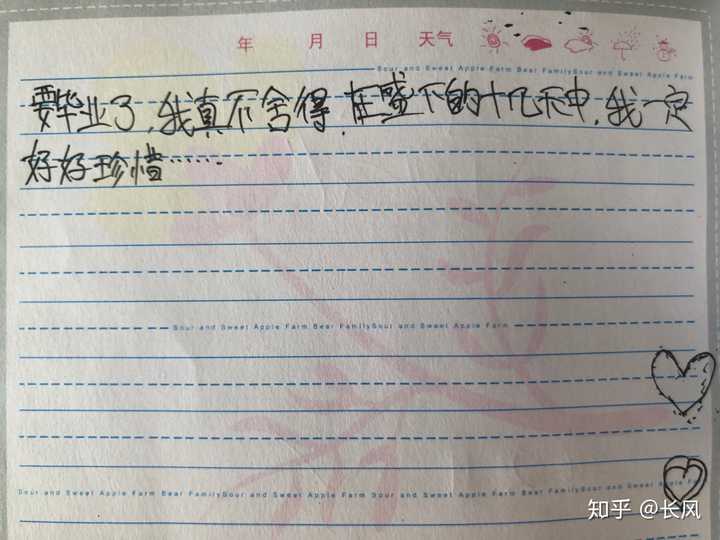 年 月 日 天气
Sour and Sweet Apple Farm Bear FamilySour and Sweet Apple Farm
要毕业了,我真不舍得.在盛下的十几天中,我一定
好好珍惜……
Sour and Sweet Apple Farm Bear FamilySour and Sweet Apple Farm
Sour and Sweet Apple Farm Bear FamilySour and Sweet Apple Farm Sour and Sweet Apple Farm Bear FamilySour and Sweet Apple
知乎 @长风